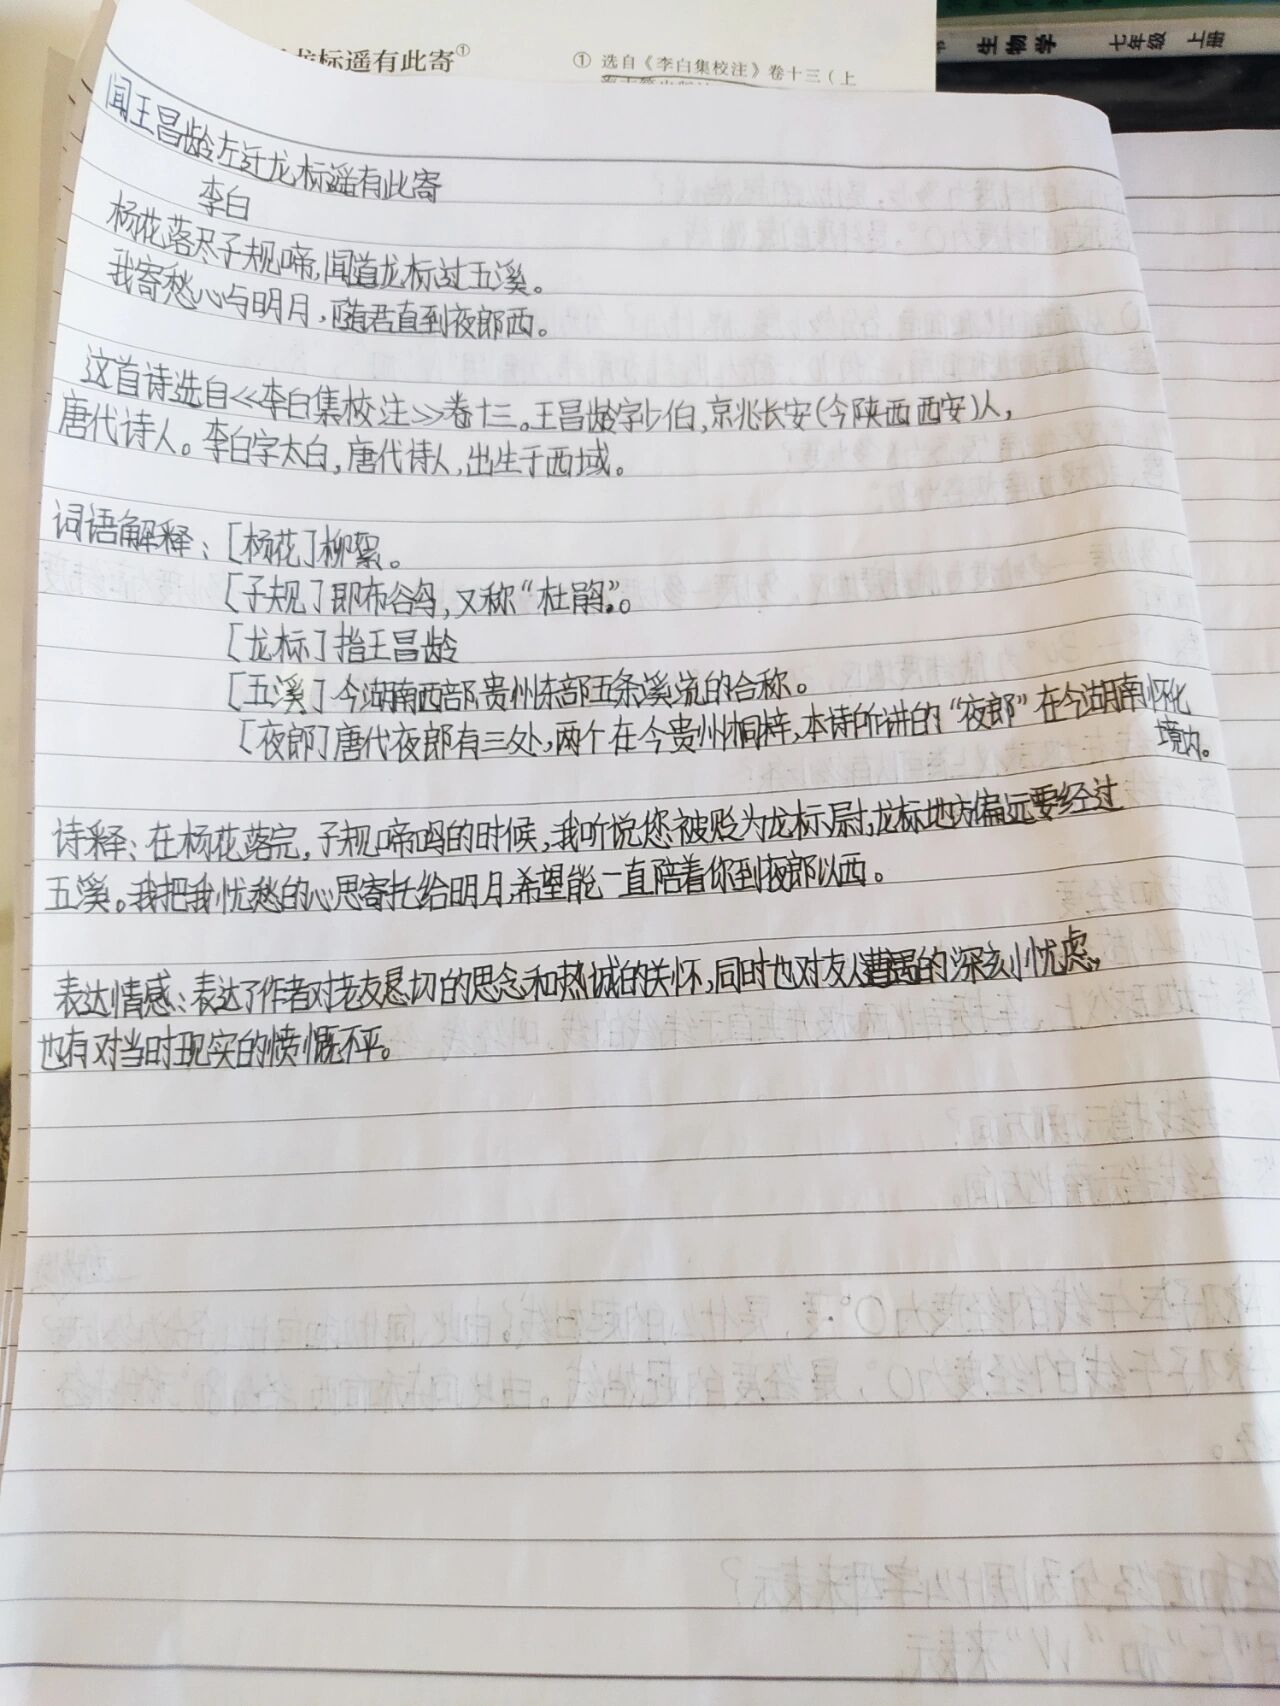 龙标遥有此寄①
① 选自《李白集校注》卷十三（上
生物学 七年级 上册
闻王昌龄左迁龙标遥有此寄
李白
杨花落尽子规啼,闻道龙标过五溪。
我寄愁心与明月,随君直到夜郎西。
这首诗选自《李白集校注》卷十三。王昌龄字少伯,京兆长安(今陕西西安)人,
唐代诗人。李白字太白,唐代诗人,出生于西域。
词语解释:[杨花]柳絮。
[子规]即布谷鸟,又称“杜鹃”。
[龙标]指王昌龄
[五溪]今湖南西部贵州东部五条溪流的合称。
[夜郎]唐代夜郎有三处,两个在今贵州桐梓,本诗所讲的“夜郎”在今湖南怀化
境内。
诗释:在杨花落完,子规啼鸣的时候,我听说您被贬为龙标尉,龙标地方偏远要经过
五溪。我把我忧愁的心思寄托给明月,希望能一直陪着你到夜郎以西。
表达情感:表达了作者对老友恳切的思念和热诚的关怀,同时也对友人遭遇的深刻忧虑,
也有对当时现实的愤慨不平。